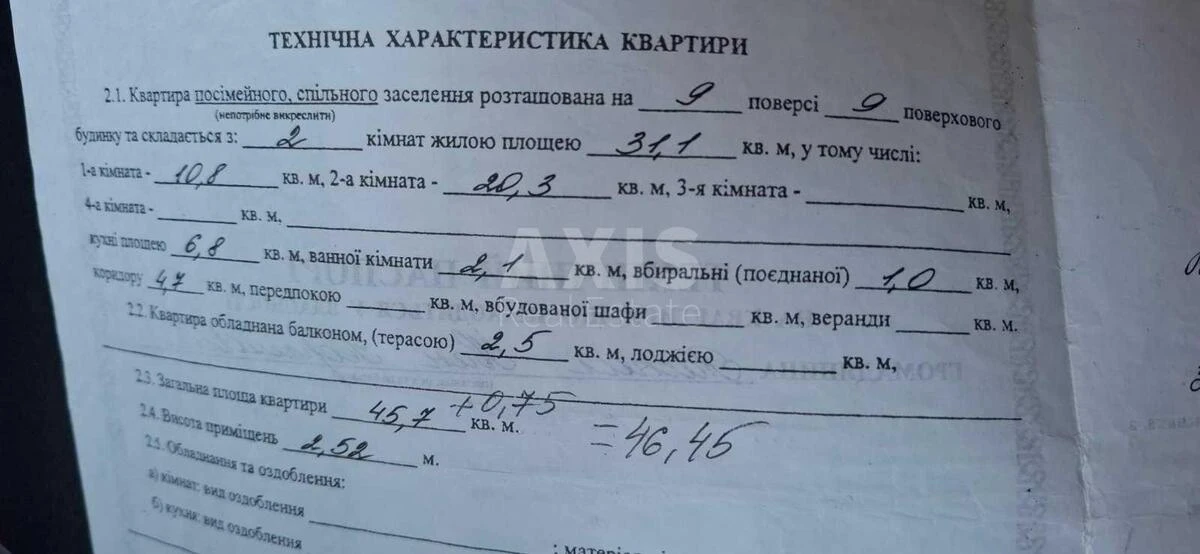 ТЕХНІЧНА ХАРАКТЕРИСТИКА КВАРТИРИ
2.1. Квартира посімейного, спільного заселення розташована на 9 поверсі 9 поверхового
(непотрібне викреслити)
будинку та складається з: 2 кімнат жилою площею 31,1 кв. м, у тому числі:
1-а кімната - 10,8 кв. м, 2-а кімната - 20,3 кв. м, 3-я кімната - кв. м,
4-а кімната - кв. м,
кухні площею 6,8 кв. м, ванної кімнати 2,1 кв. м, вбиральні (поєднаної) 1,0 кв. м,
коридору 4,7 кв. м, передпокою кв. м, вбудованої шафи кв. м, веранди кв. м.
2.2. Квартира обладнана балконом, (терасою) 2,5 кв. м, лоджією кв. м,
2.3. Загальна площа квартири 45,7 +0,75 кв. м. =46,45
2.4. Висота приміщень 2,52 м.
2.5. Обладнання та оздоблення:
а) кімнат: вид оздоблення
б) кухня: вид оздоблення
AXIS
Real Estate